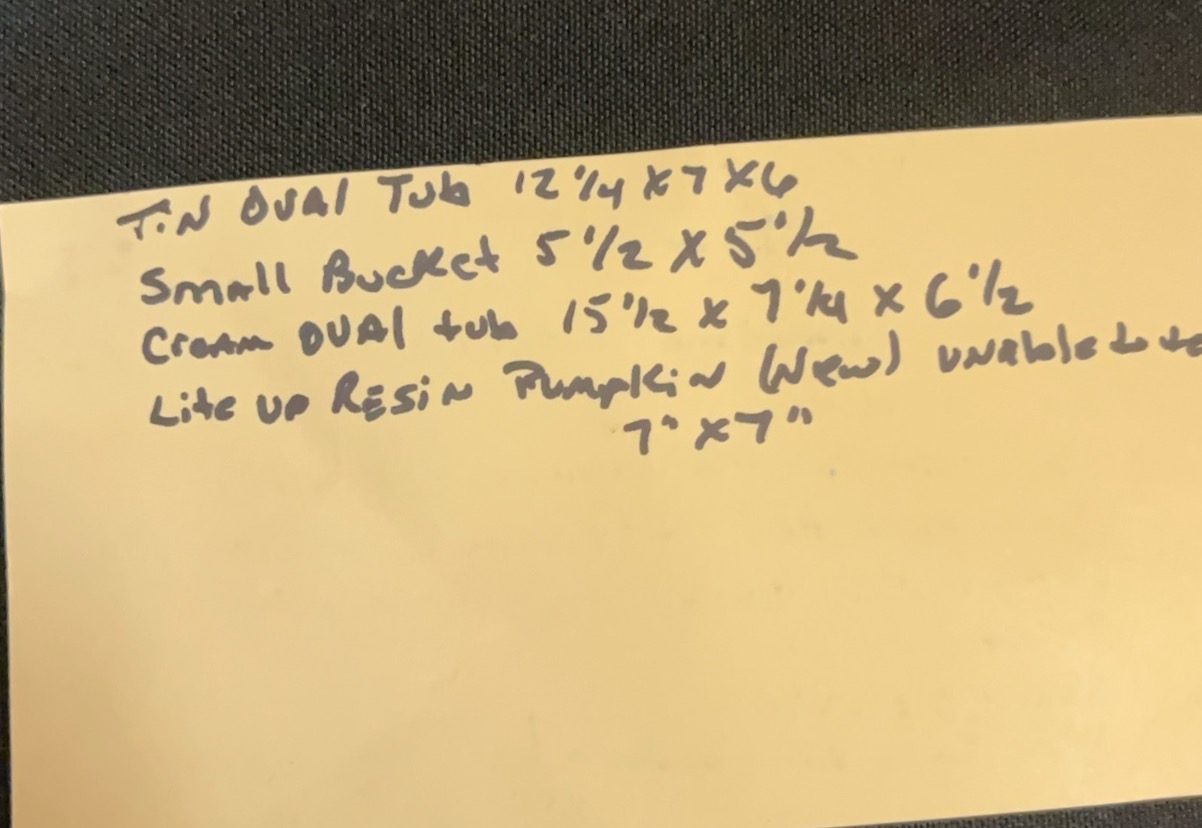 TiN OVAl Tub 12 1/4 x 7 x 6
Small Bucket 5 1/2 x 5 1/2
Cream OVAl tub 15 1/2 x 7 1/4 x 6 1/2
Lite up RESiN PumpkiN (New) UNable to te
7" x 7"